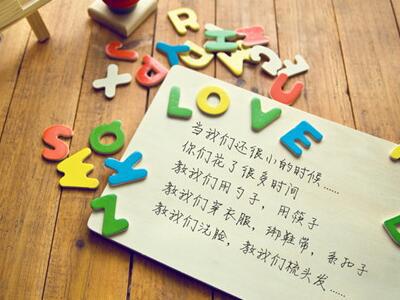 LOVE
当我们还很小的时候
你们花了很多时间
教我们用勺子，用筷子
教我们穿衣服，绑鞋带，系扣子
教我们洗脸，教我们梳头发……